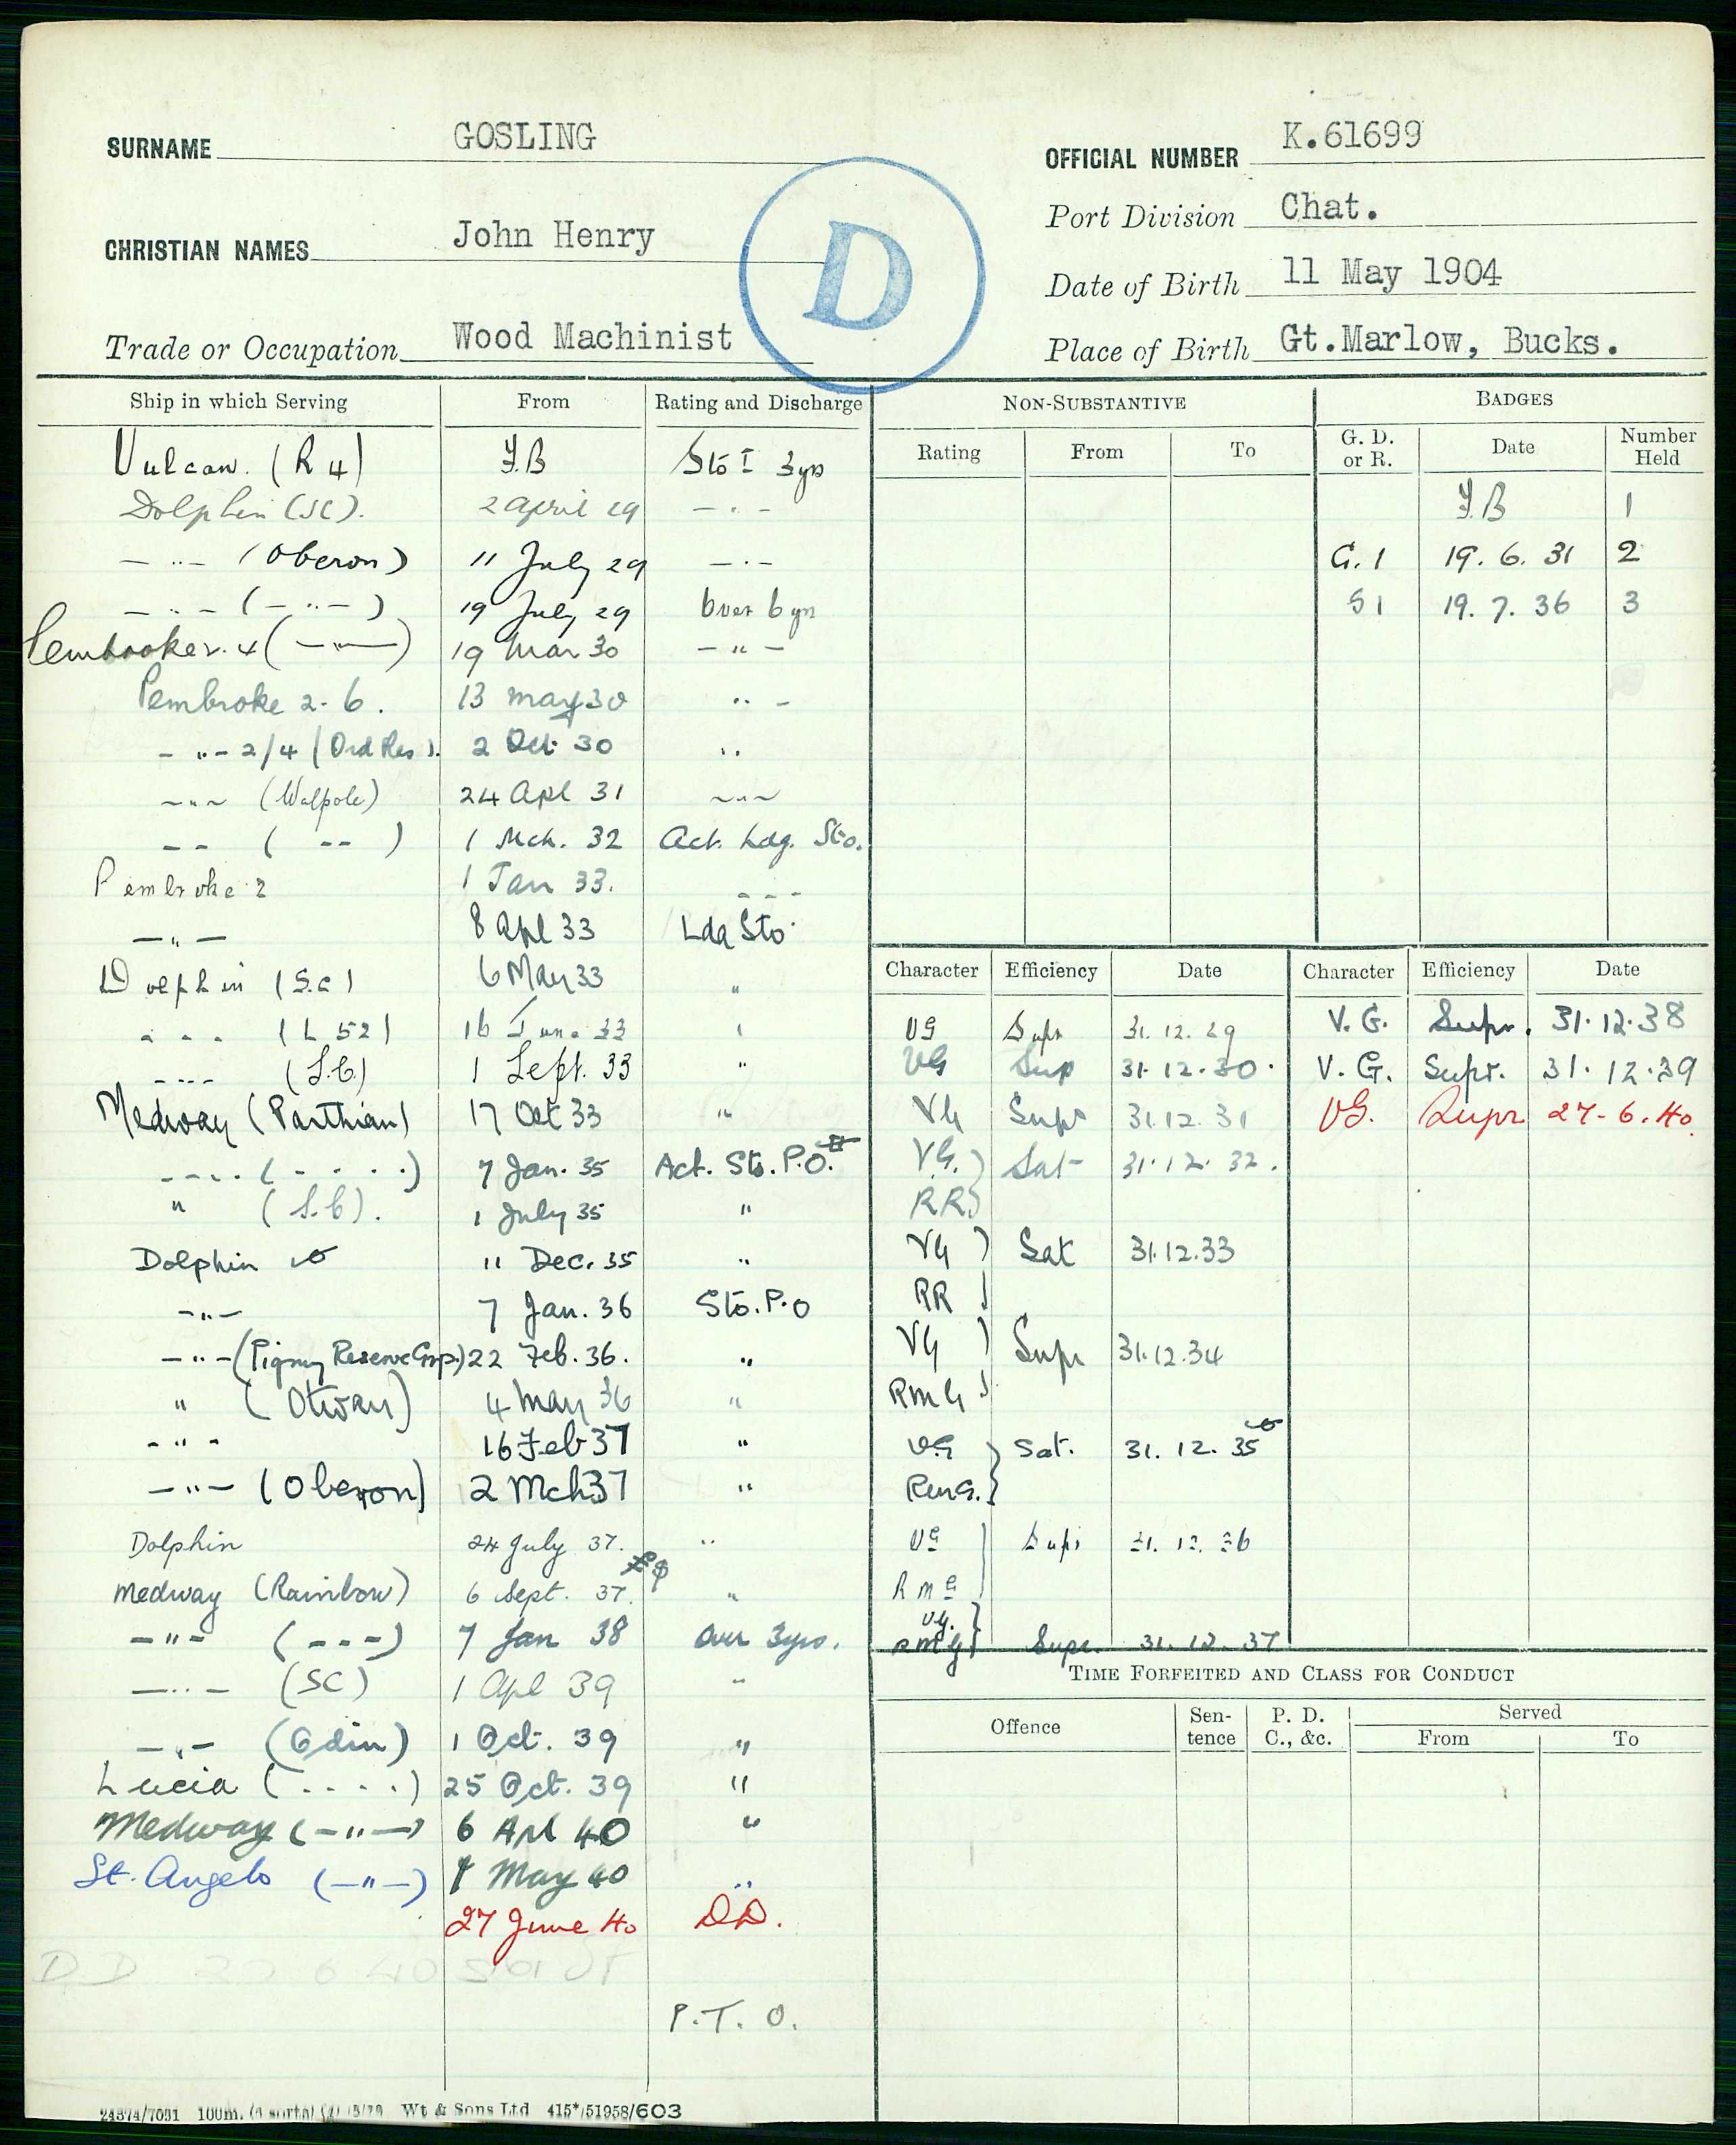 SURNAME GOSLING
OFFICIAL NUMBER K.61699
CHRISTIAN NAMES John Henry
Port Division Chat.
D
Date of Birth 11 May 1904
Trade or Occupation Wood Machinist
Place of Birth Gt.Marlow, Bucks.
Ship in which Serving From Rating and Discharge
Vulcan. (R 4) Y.B Sto I 3yrs
Dolphin (SC). 2 april 29 - . -
- .. - (Oberon) 11 July 29 - . -
- .. - ( - .. - ) 19 July 29 Over 6 yrs
19 Mar 30 - " -
Pembroke 2-6. 13 may 30 .. -
- .. - 2/4 (Ord Res). 2 Oct 30 ..
~ .. ~ (Walpole) 24 Apl 31 ~ .. ~
- - ( - - ) 1 Mch. 32 Act. Ldg. Sto.
Pembroke 2 1 Jan 33. - - -
- " - 8 Apl 33 Ldg Sto.
Dolphin (S.C) 6 May 33 "
- - - (L 52) 16 June 33 '
- - - - (S.C.) 1 Sept. 33 "
Medway (Parthian) 17 Oct 33 "
- - . . ( - . . . . ) 7 Jan. 35 Act. Sto. P.O.
" (S.C). 1 July 35 "
Dolphin 11 Dec. 35 "
- .. - 7 Jan. 36 Sto. P.O
- .. - (Pigmy Reserve Grp.) 22 Feb. 36. "
" (Otway) 4 May 36 "
- " - 16 Feb 37 "
- " - (Oberon) 2 Mch 37 "
Dolphin 24 July 37. ..
Medway (Rainbow) 6 Sept. 37. "
- " - ( - - - ) 7 Jan 38 Over 3yrs.
- .. - (SC) 1 Apl 39 "
- .. - (Odin) 1 Oct. 39 "
Lucia ( . . . . ) 25 Oct. 39 "
Medway ( - " - ) 6 Apl 40 "
St. Angelo ( - " - ) 1 May 40 ..
27 June 40 DD.
P.T.O.
24374/7031 100m. Wt & Sons Ltd 415*/51958/603
NON-SUBSTANTIVE
Rating From To
BADGES
G. D. or R. Date Number Held
Y.B 1
G.1 19. 6. 31 2
G1 19. 7. 36 3
Character Efficiency Date Character Efficiency Date
VG Supr 31. 12. 29 V. G. Supr. 31.12.38
VG Sup 31.12.30. V. G. Supr. 31.12.39
VG Supr 31.12.31 VG. Supr 27-6.40.
VG. ) Sat 31.12.32.
RR )
VG ) Sat 31.12.33
RR )
VG ) Supr 31.12.34
RMG )
VG } Sat. 31. 12. 35
RMG. }
VG Supr 31. 12. 36
RMG
VG. } Supr. 31. 12. 37
RMG }
TIME FORFEITED AND CLASS FOR CONDUCT
Offence Sentence P. D. C., &c. Served
From To